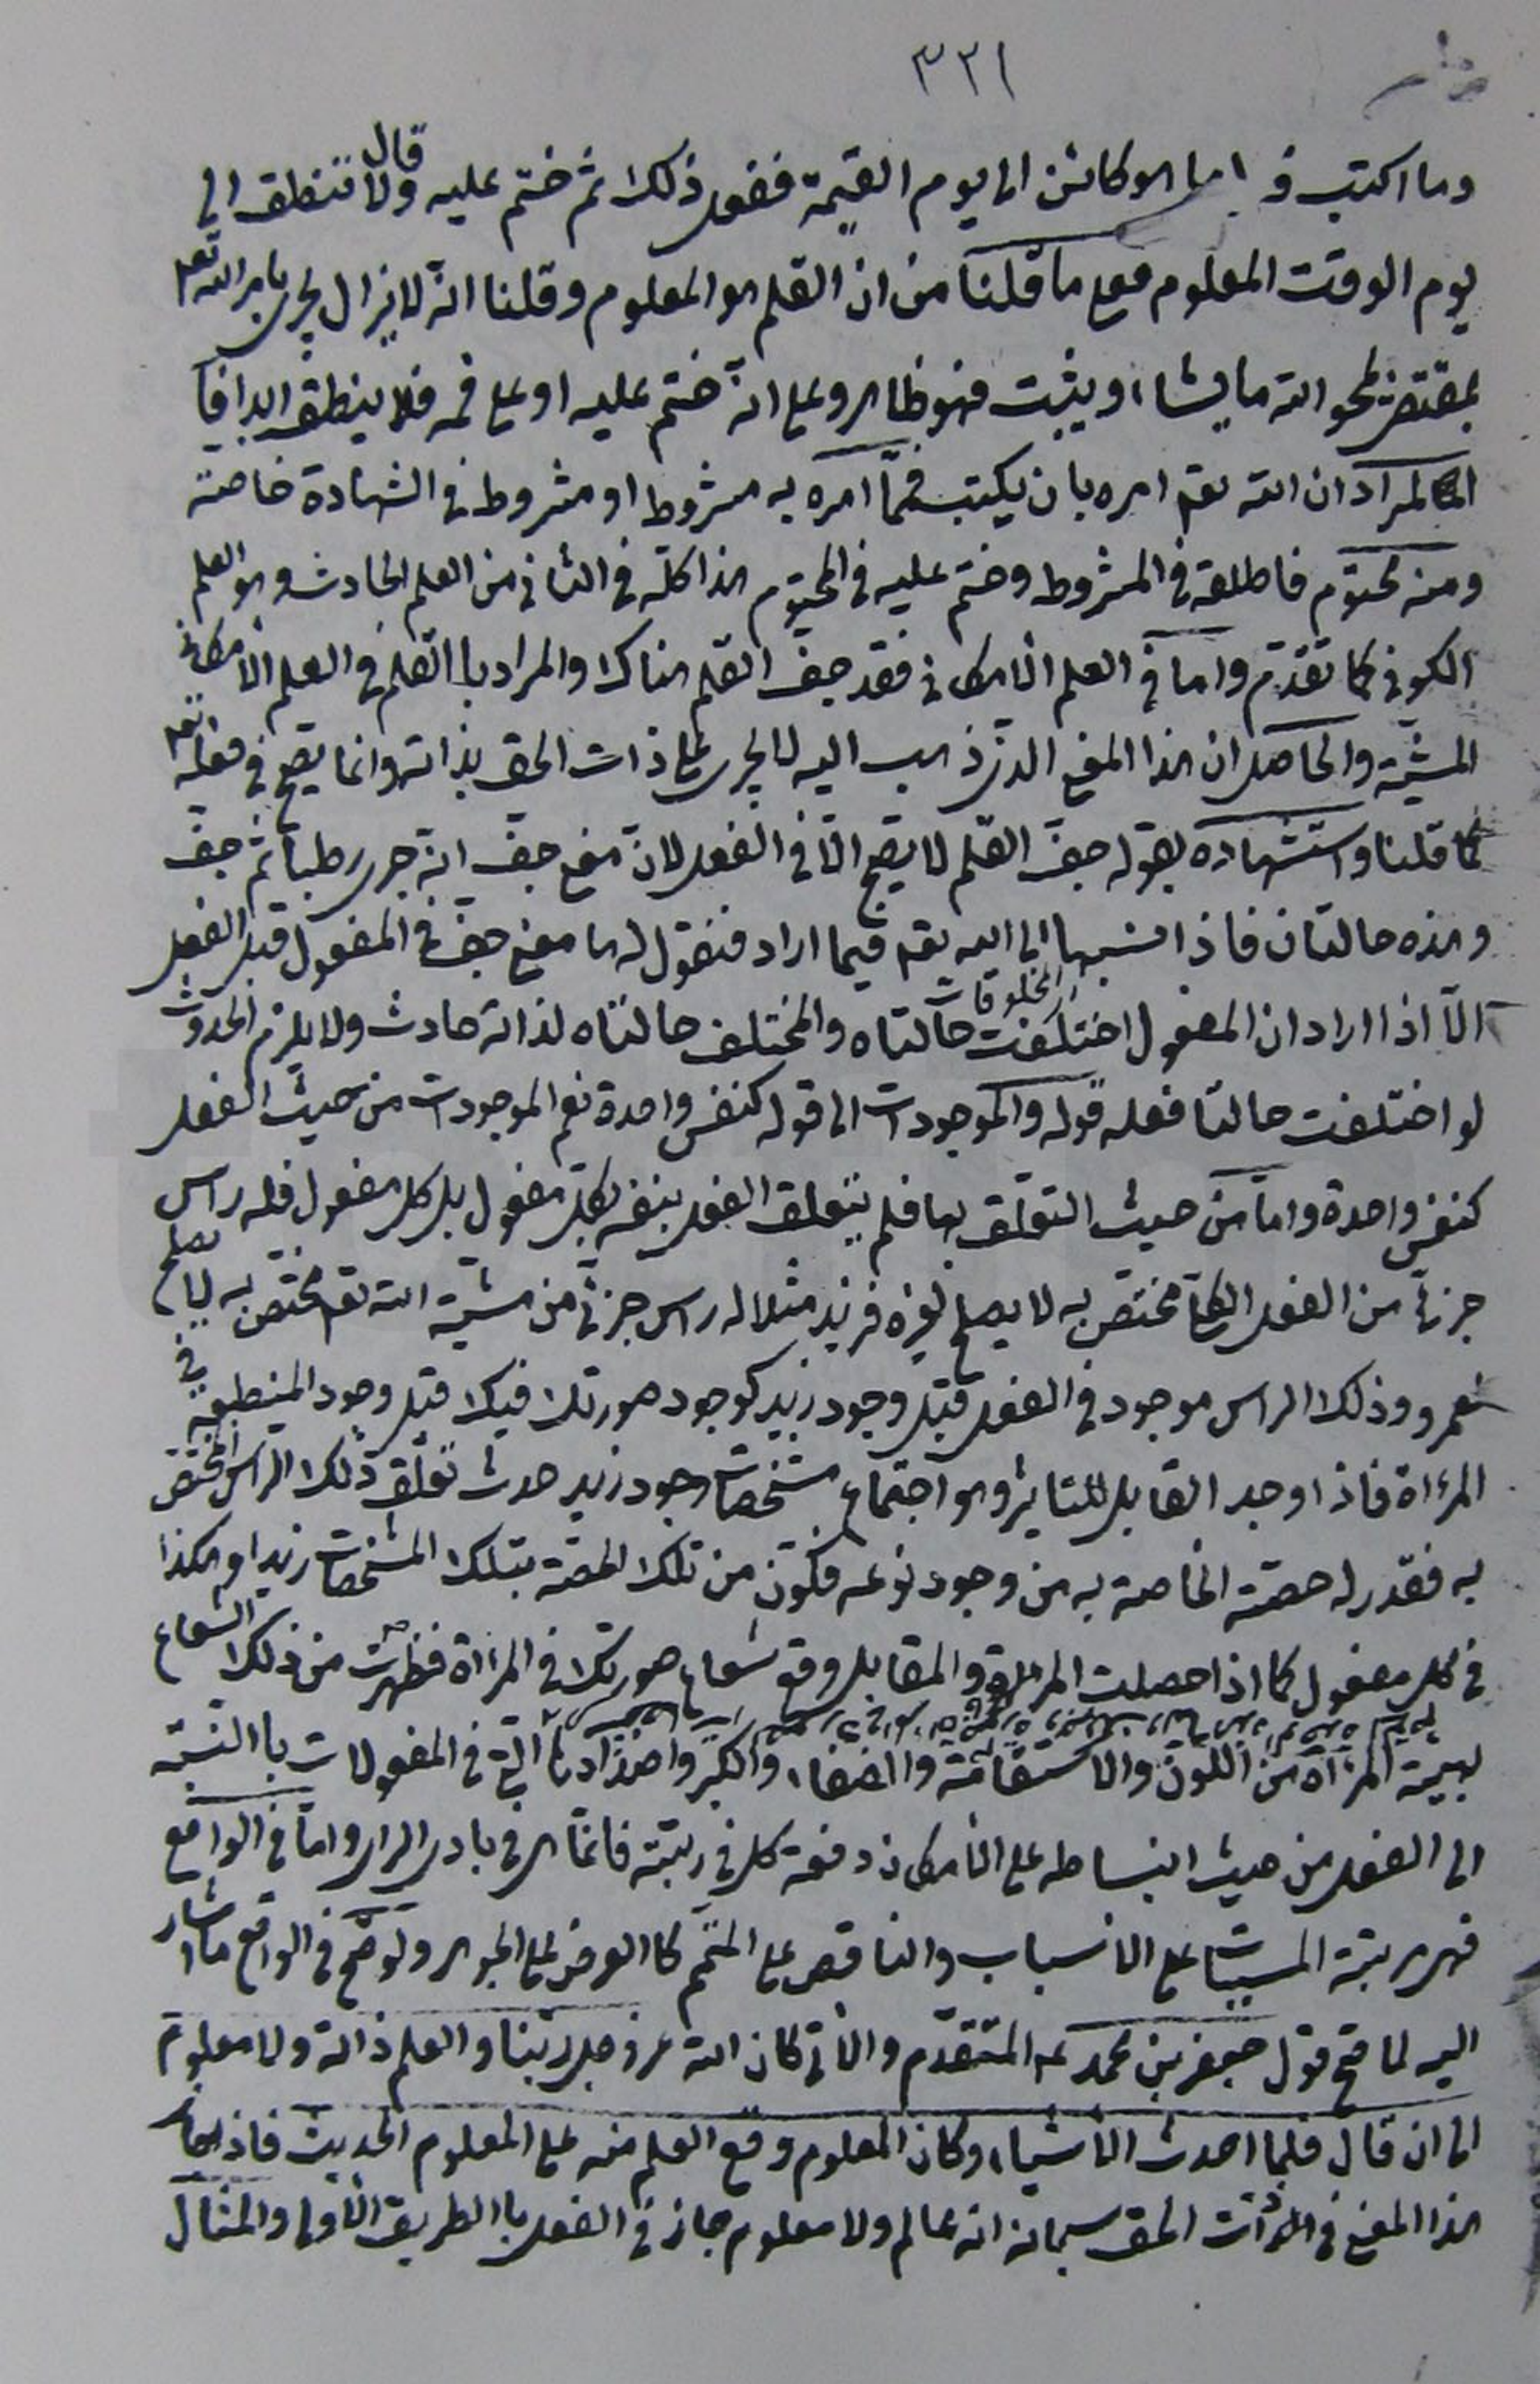 ٣٢١
وما اكتب ف ما هو كائن الى يوم القيمة ففعل ذلك ثم ختم عليه وقال لا تنطق الى
يوم الوقت المعلوم فعلى ما قلنا من ان القلم هو المعلوم وقلنا انه لا يزال يجرى بامر الله تعالى
بمقتضى يمحو الله ما يشاء ويثبت فهو ظاهر وعلى انه ختم عليه او على فمه فلا ينطق ابدا
فالمراد ان الله تعم امره بان يكتب فمما امره به مشروط او مشروط فى الشهادة خاصة
ومنه محتوم فاطلقه فى المشروط وختم عليه فى المحتوم هذا كله فى الثانى من العلم الحادث وهو العلم
الكونى كما تقدم واما فى العلم الامكانى فقد جف القلم هناك والمراد باالقلم فى العلم الامكانى
المشية والحاصل ان هذا المعنى الذى ذهب اليه لا يجرى على ذات الحق بذاته وانما يصح فى فعله تعم
كما قلنا واستشهاده بقوله جف القلم لا يصح الا فى الفعل لان معنى جف انه جرى رطبا ثم جف
وهذه حالتان فاذا نسبها الى الله تعم فيما اراد فنقول له ما معنى جف فى المفعول قبل الفعل
الا اذا اراد ان المفعول المخلوقات اختلفت حالتاه والمختلف حالتاه لذاته حادث ولا يلزم الحدوث
لو اختلفت حالتا فعله قوله والموجودات الى قوله كنفس واحدة نعم الموجودات من حيث الفعل
كنفس واحدة واما من حيث التعلق بها فلم يتعلق الفعل بنفسه بكل مفعول بل كل مفعول فله راس
جزئى من الفعل الكلى مختص به لا يصلح لغيره فزيد مثلا له راس جزئى من مشية الله تعم مختص به لا يصلح
لعمرو وذلك الراس موجود فى الفعل قبل وجود زيد كوجود صورتك فيك قبل وجود المنطبعة فى
المرءاة فاذا وجد القابل للتاثير وهو اجتماع مشخصات وجود زيد حدث تعلق ذلك الراس المختص
به فقدر له حصته الخاصة به من وجود نوعه فكون من تلك الحصة بتلك المشخصات زيدا وهكذا
فى كل مفعول كما اذا حصلت المرءاة والمقابل وقع شعاع صورتك فى المرءاة فظهرت من ذلك الشعاع
بهيئة المرءاة من اللون والاستقامة والصفاء والكبر واضدادها فى المفعولات باالنسبة
الى الفعل من حيث انبساطه على الامكان دفعة كل فى رتبته فانما هى فى بادى الراى واما فى الواقع
فهى مرتبة المسببات على الاسباب والناقص على المتمم كالعرض على الجوهر ولو صح فى الواقع ما اشار
اليه لما صح قول جعفر بن محمد المتقدم والاتى كان الله عز وجل ربنا والعلم ذاته ولا معلوم
الى ان قال فلما احدث الاشياء وكان المعلوم وقع العلم منه على المعلوم الحديث فاذا جاز
هذا المعنى فى الذات الحق سبحانه انه عالم ولا معلوم جاز فى الفعل باالطريق الاولى والمثال